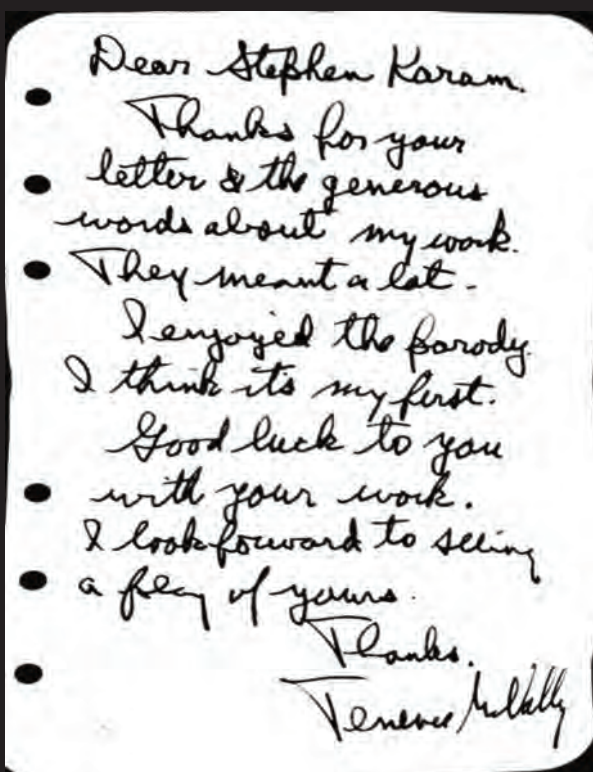 Dear Stephen Karam.
Thanks for your
letter & the generous
words about my work.
They meant a lot.
I enjoyed the parody.
I think it's my first.
Good luck to you
with your work.
I look forward to seeing
a play of yours.
Thanks.
Terrence McNally